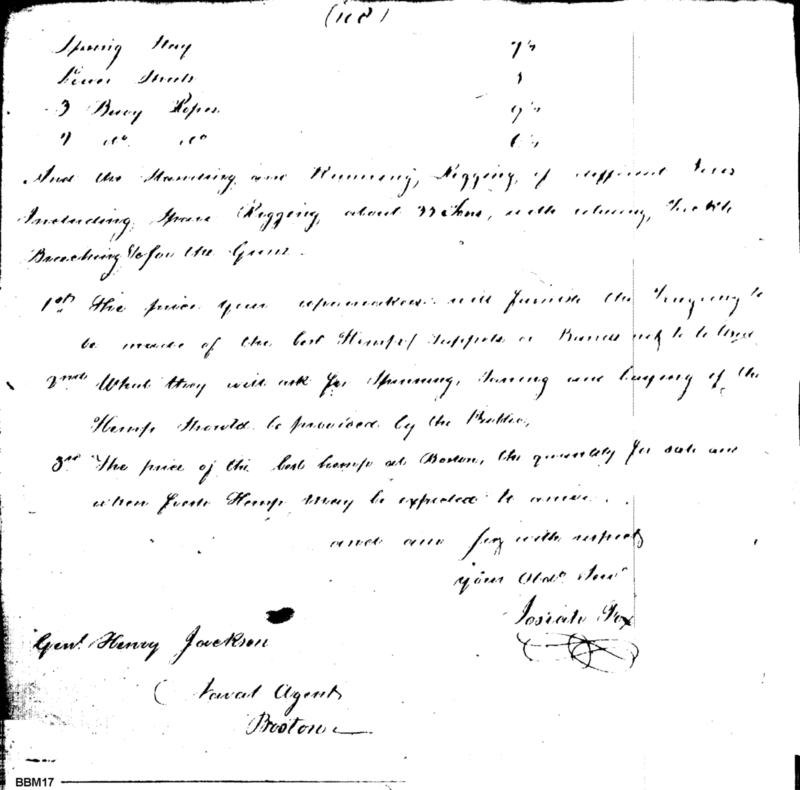 (118)
Spring Stay 7½
Sheets
3 Buoy Ropes 9½
7 do do 6½
And the Standing and Running Rigging of different Sizes
Including Spare Rigging about 33 tons, with Tackle
Breeching &c for the Guns.
1st The price your ropemakers will furnish the to
be made of the best Hemp / or not to be used
2nd What they will ask for Spinning, Tarring and laying of the
Hemp Should be provided by the Public,
3rd The price of the best hemp at Boston, the quantity for sale and
when fresh Hemp may be expected to arrive.
and am Sir with respect
your Obdt. Servt
Josiah Fox
Genl. Henry Jackson
Naval Agent
Boston
BBM17